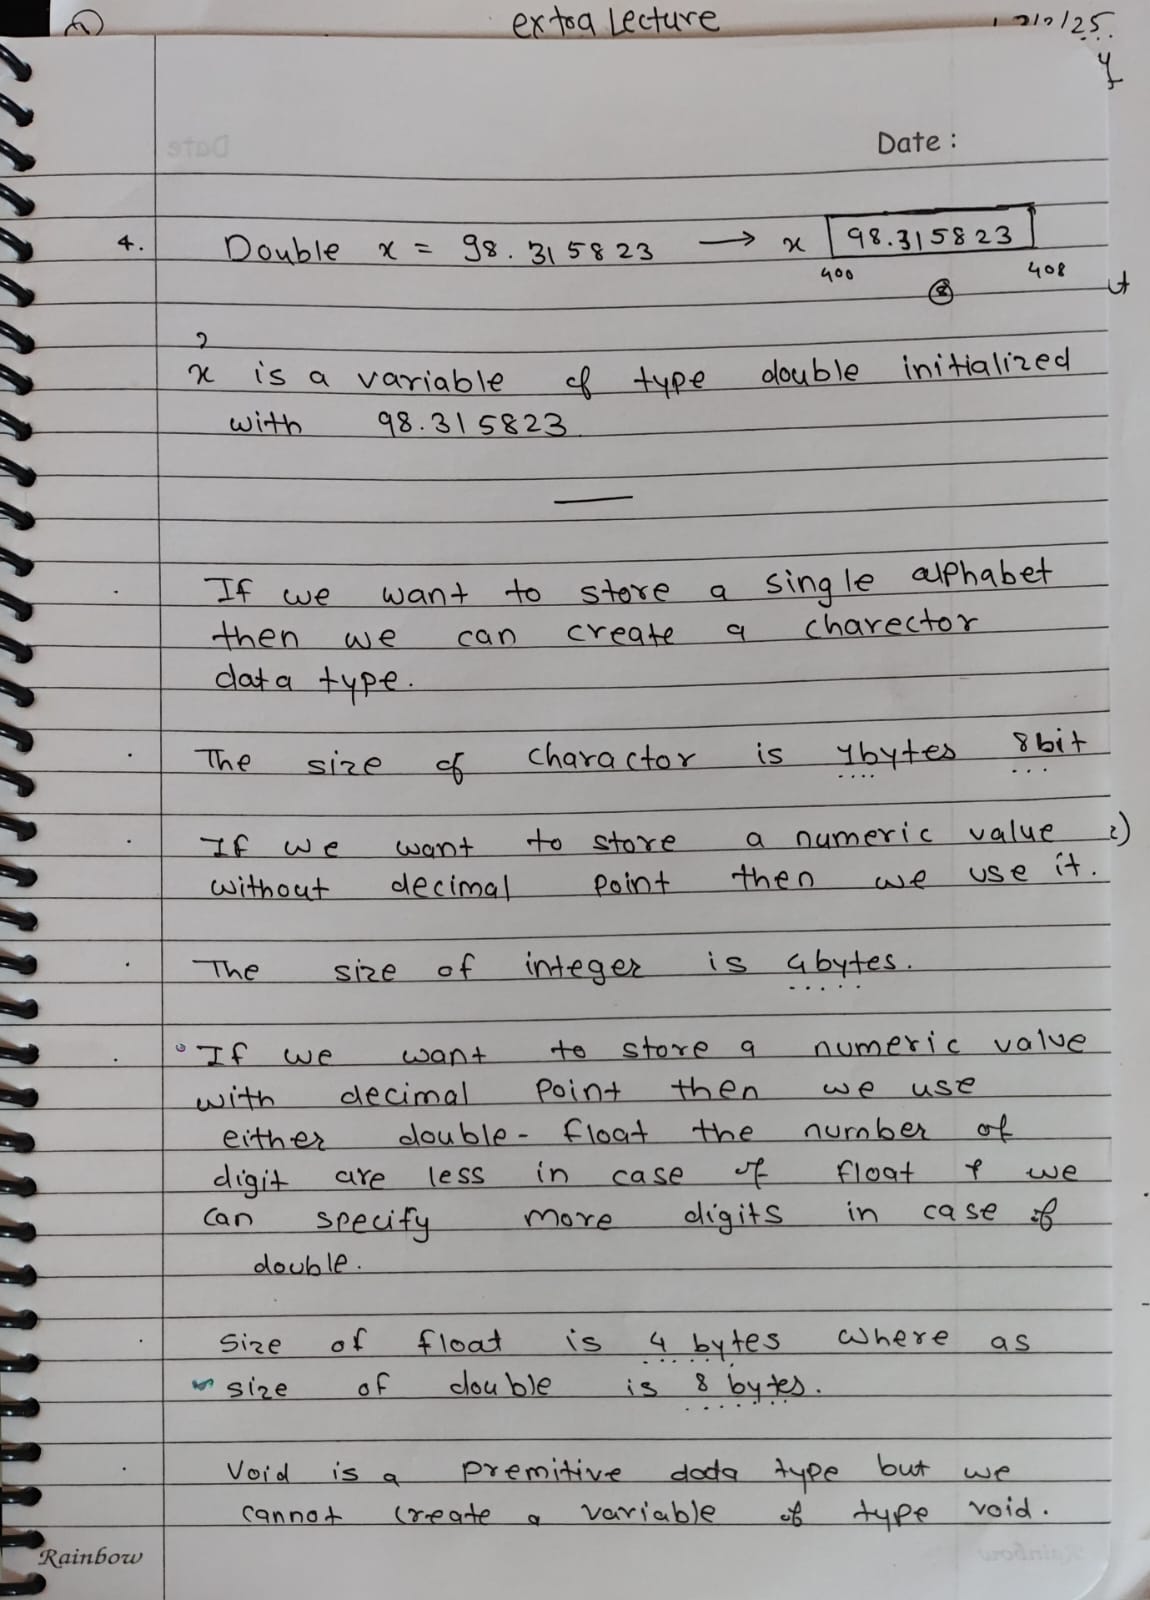 extra Lecture
/25.
Date :
4. Double x = 98.315823 → x 98.315823
400 408
8
x is a variable of type double initialized
with 98.315823
If we want to store a single alphabet
then we can create a charector
data type.
The size of charactor is 1bytes 8bit
If we want to store a numeric value
without decimal point then we use it.
The size of integer is 4bytes.
If we want to store a numeric value
with decimal point then we use
either double - float the number of
digit are less in case of float & we
can specify more digits in case of
double.
Size of float is 4 bytes where as
size of double is 8 bytes.
Void is a premitive data type but we
cannot create a variable of type void.
Rainbow